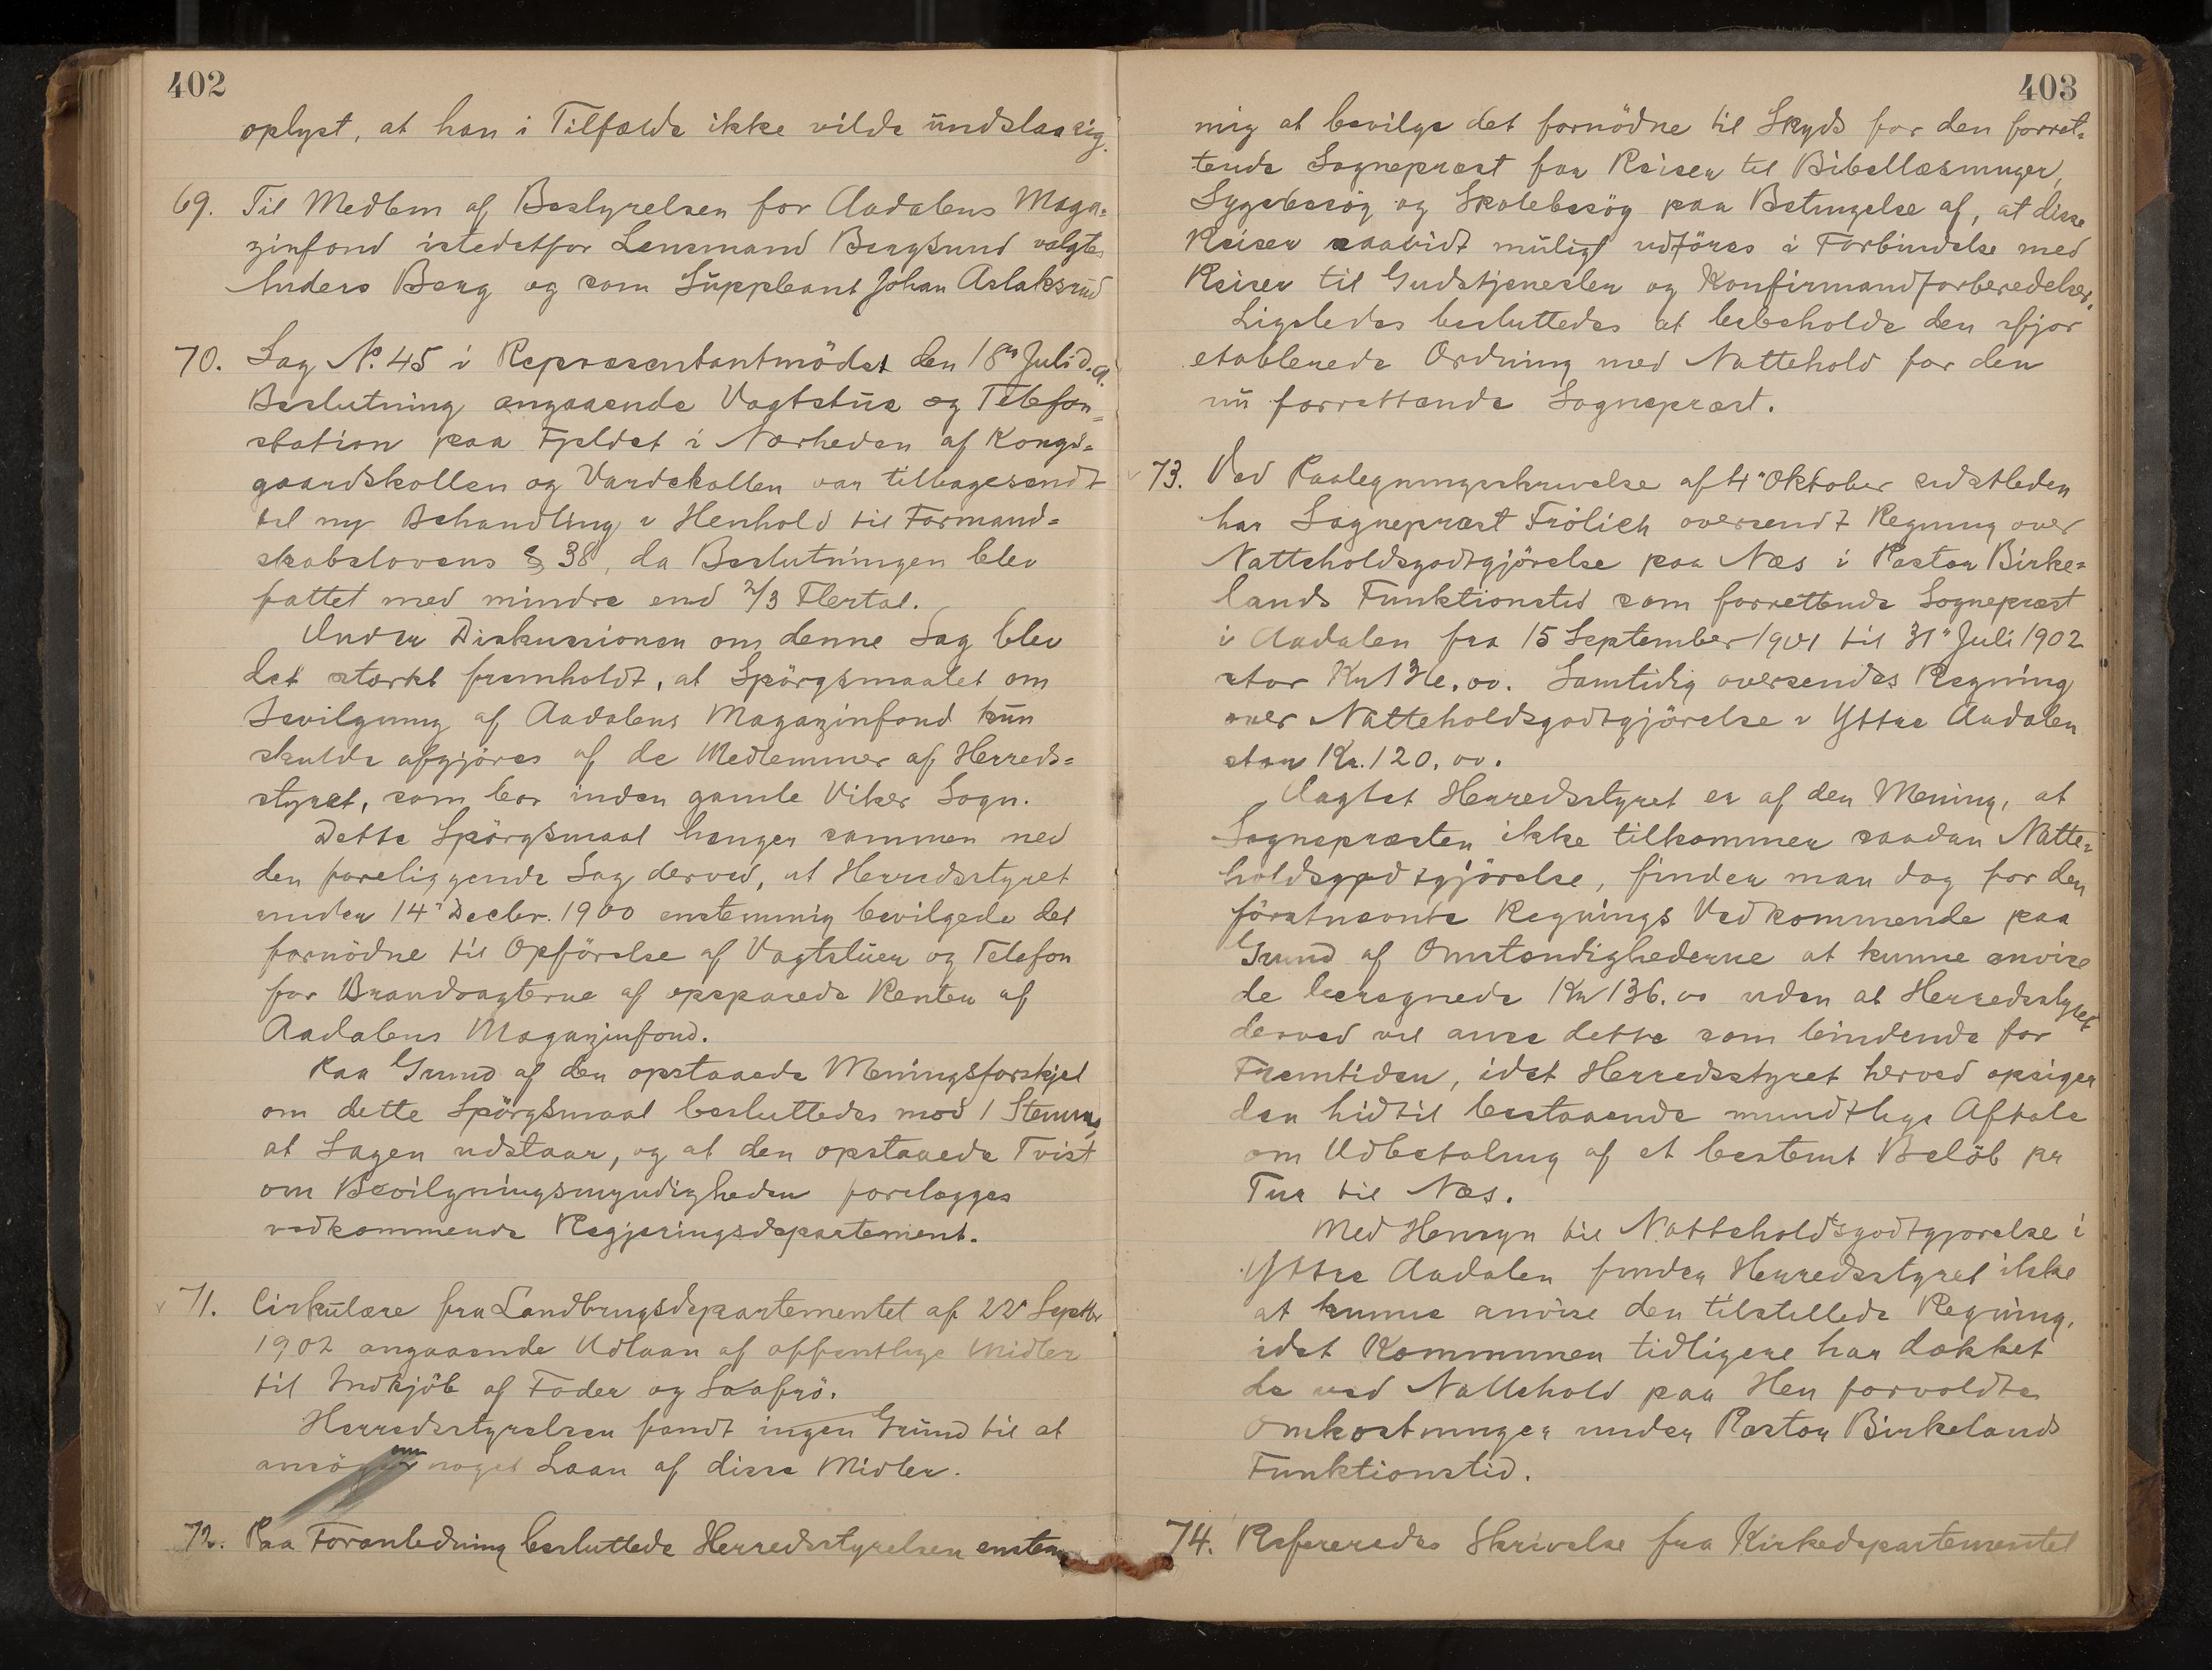 402
oplyst, at han i Tilfælde ikke vilde undslaa sig.
69. Til Medlem af Bestyrelsen for Aadalens Maga-
zinfond istedetfor Lensmand Bergsund valgtes
Anders Berg og som Suppleant Johan Aslaksrud
70. Sag No. 45 i Repræsentantmödet den 18de Juli d. a.
Beslutning angaaende Vagtstue og Telefon-
station paa Fjeldet i Nærheden af Kongs-
gaardskollen og Vardekollen var tilbagesendt
til ny Behandling i Henhold til Formand-
skabslovens § 38, da Beslutningen blev
fattet med mindre end 2/3 Flertal.
Under Diskussionen om denne Sag blev
det stærkt fremholdt, at Spörgsmaalet om
Bevilgning af Aadalens Magazinfond kun
skulde afgjöres af de Medlemmer af Herreds-
styret, som bor inden gamle Viker Sogn.
Dette Spörgsmaal hænger sammen med
den foreliggende Sag derved, at Herredsstyret
under 14" Decbr. 1900 enstemmig bevilgede det
fornödne til Opförelse af Vagtstuer og Telefon
for Brandvagterne af opsparede Renter af
Aadalens Magazinfond.
Paa Grund af den opstaaede Meningsforskjel
om dette Spörgsmaal besluttedes mod 1 Stemme,
at Sagen udstaar, og at den opstaaede Tvist
om Bevilgningsmyndigheden forelægges
vedkommende Regjeringsdepartement.
71. Cirkulære fra Landbrugsdepartementet af 22" Septbr
1902 angaaende Udlaan af offentlige Midler
til Indkjöb af Foder og Saafrö.
Herredsstyrelsen fandt ingen Grund til at
ansöge om noget Laan af disse Midler.
72. Paa Foranledning besluttede Herredsstyrelsen enstem-
403
mig at bevilge det fornödne til Skyds for den forret-
tende Sognepræst for Reiser til Bibellæsninger,
Sygebesög og Skolebesög paa Betingelse af, at disse
Reiser saavidt muligt udföres i Forbindelse med
Reiser til Gudstjenester og Konfirmandforberedelser.
Ligeledes besluttedes at beholde den ifjor
etablerede Ordning med Nattehold for den
nu forrettende Sogneprest.
73. Ved Paategningsskrivelse af 4" Oktober sidstleden
har Sognepræst Frölich oversendt Regning over
Natteholdsgodtgjörelse paa Næs i Pastor Birke-
lands Funktionstid som forrettende Sogneprest
i Aadalen fra 15 September 1901 til 31" Juli 1902
stor Kr 136.00. Samtidig oversendes Regning
over Natteholdsgodtgjörelse i Yttre Aadalen
stor Kr. 120.00.
Uagtet Herredsstyret er af den Mening, at
Sognepræsten ikke tilkommer saadan Natte-
holdsgodtgjörelse, finder man dog for den
förstnævnte Regnings Vedkommende paa
Grund af Omstændighederne at kunne anvise
de beregnede Kr 136.00 uden at Herredsstyret
derved vil anse dette som bindende for
Fremtiden, idet Herredsstyret herved opsiger
den hidtil bestaaende mundtlige Aftale
om Udbetaling af et bestemt Belöb pr
Tur til Næs.
Med Hensyn til Natteholdsgodtgjorelse i
Yttre Aadalen finder Herredsstyret ikke
at kunne anvise den tilstillede Regning,
idet Kommunen tidligere har dækket
de ved Nattehold paa Hen forvoldte
Omkostninger under Pastor Birkelands
Funktionstid.
74. Refereredes Skrivelse fra Kirkedepartementet